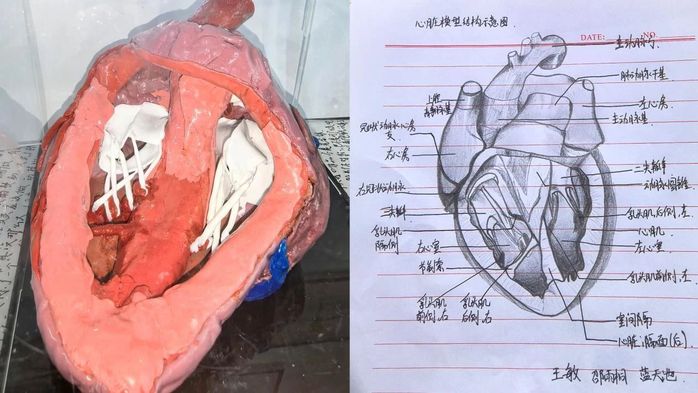 心脏模型结构示意图.
DATE:
NO.
主动脉弓
肺动脉干基
上腔
左心房
主动脉基.
右心房
二尖瓣
三尖瓣
乳头肌后侧.左
心肌
乳头肌
隔侧
右心室
左心室.
节制索
乳头肌前侧.左
乳头肌
前侧.右
乳头肌
后侧.右
室间隔
心脏:隔面(后)
王敏 邵雨桐 蓝天池